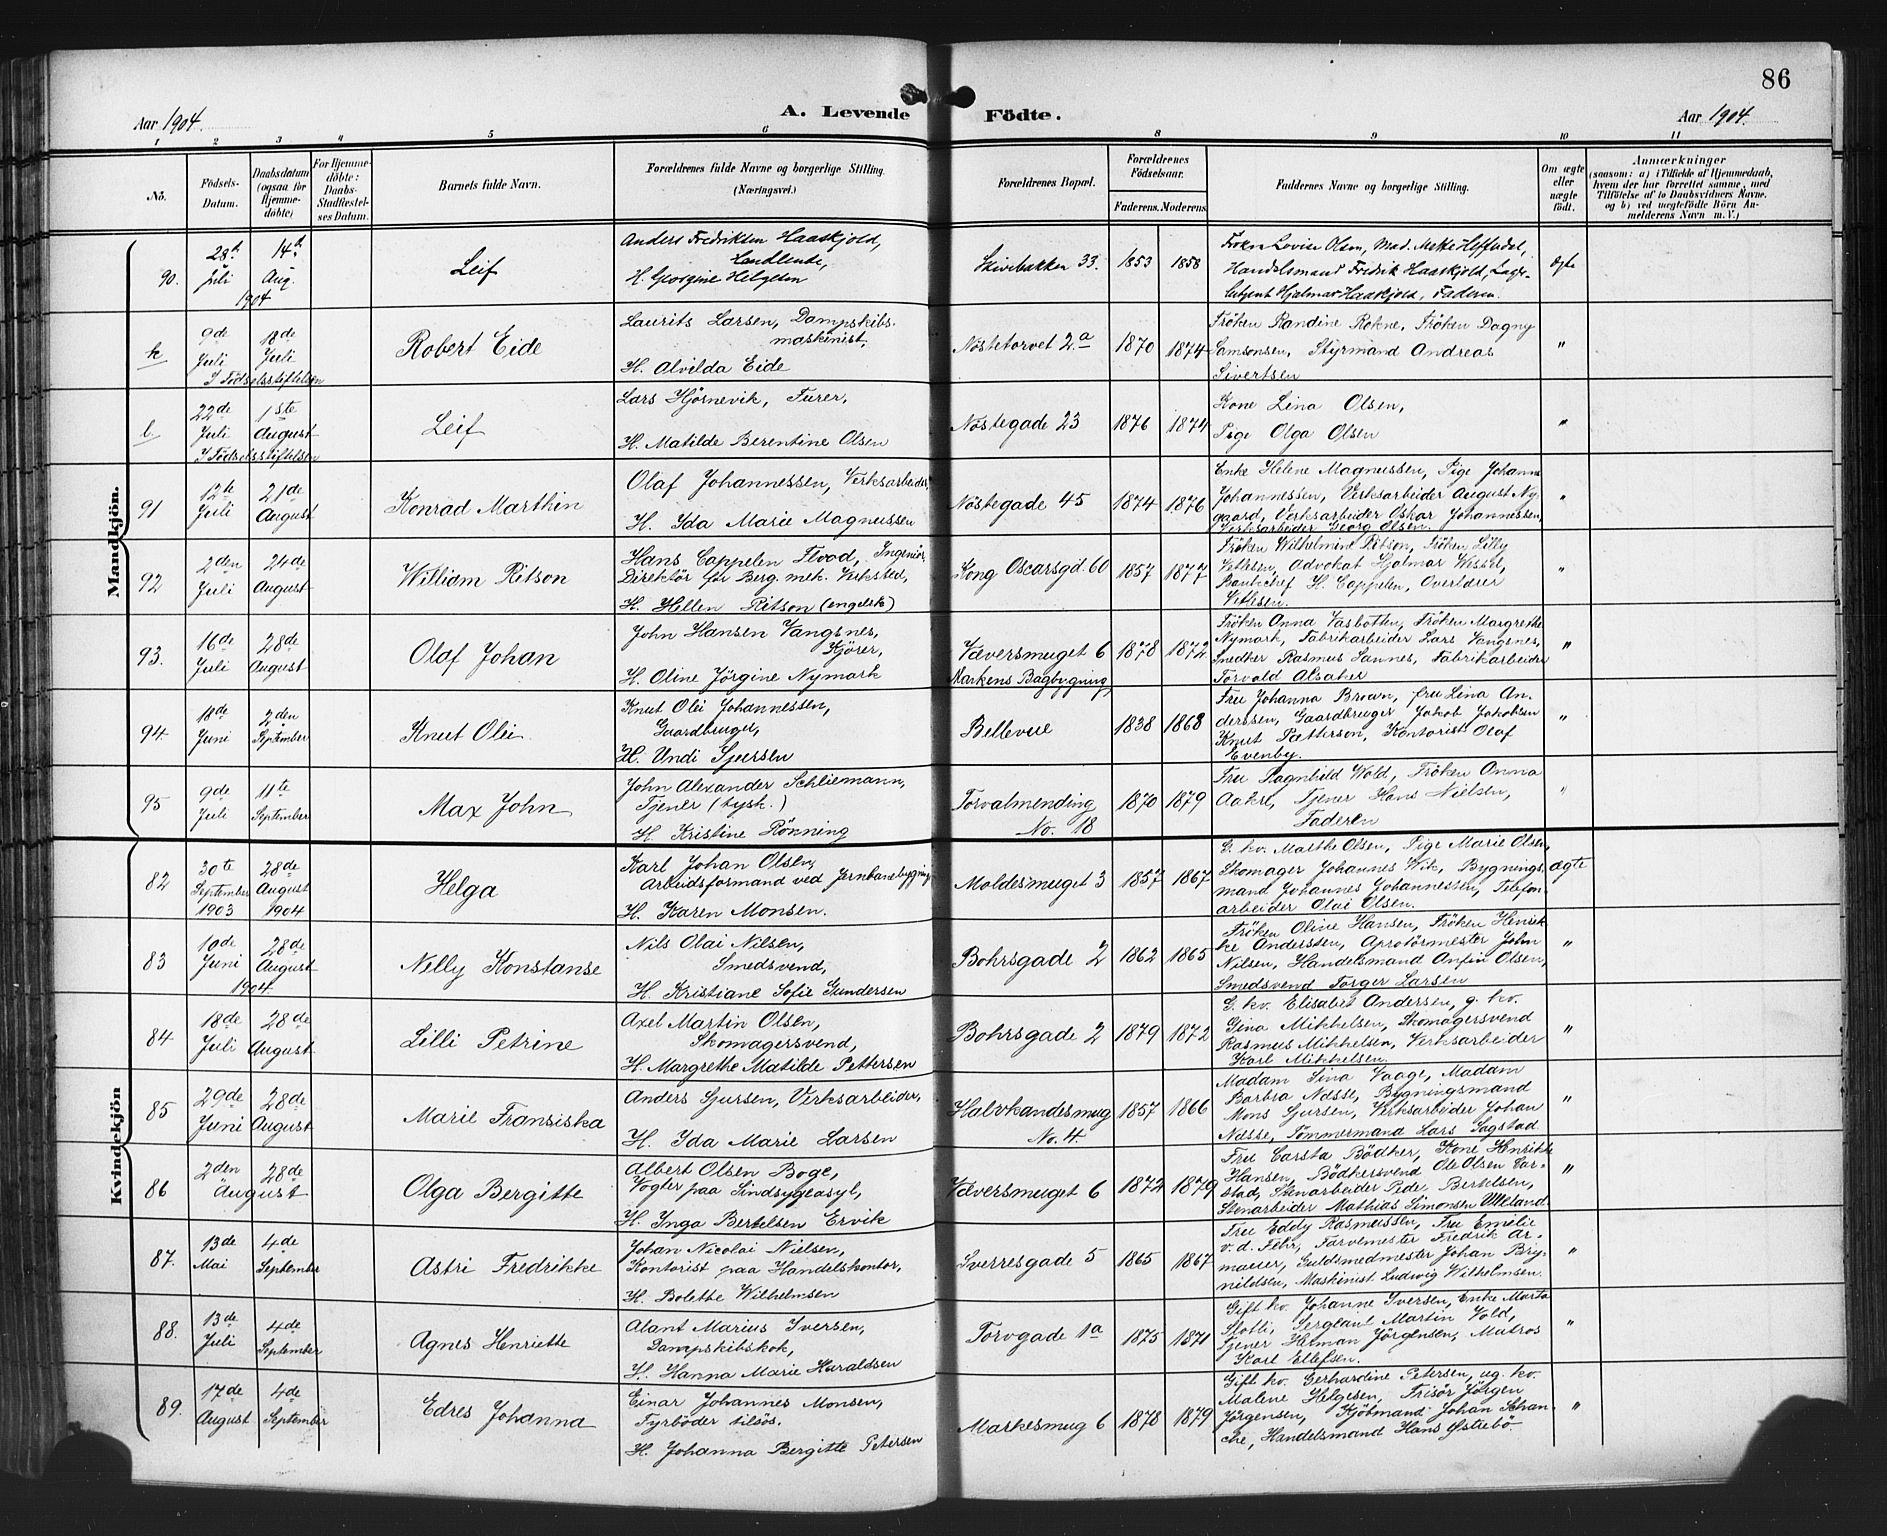 86
Aar 1904.
A. Levende Födte.
Aar 1904.
1 2 3 4 5 6 8 9 10 11
No.
Födsels-Datum.
Daabsdatum (ogsaa for Hjemme-döbte)
For Hjemme-döbte: Daabs-Stadfæstel-ses Datum.
Barnets fulde Navn.
Forældrenes fulde Navne og borgerlige Stilling.
(Næringsvei.)
Forældrenes Bopæl.
Forældrenes Födselsaar.
Faderens. Moderens.
Faddernes Navne og borgerlige Stilling.
Om ægte eller uægte födt.
Anmærkninger
(saasom: a) i Tilfælde af Hjemmedaab,
hvem der har forrettet samme, med
Tilföielse af to Daabsvidners Navne,
og b) ved uægtefödte Börn An-
melderens Navn m. V.)
Mandkjön.
90. 28de Juli 1904 14de Aug. Leif
Anders Fredriksen Haaskjold,
Handlende,
H. Georgine Helgesen
Skivebakken 33. 1853 1858
Frøken Lovise Olsen, Mad. Mette
Handelsmand Fredrik Haaskjold, Lager-
betjent Hjalmar Haaskjold, Faderen.
ægte
k 9de Juli 18de Juli
I Födselsstiftelsen
Robert Eide
Laurits Larsen, Dampskibs-
maskinist,
H. Alvilda Eide
Nöstetorvet 2a 1870 1874
Fröken Randine Rokne, Fröken Dagny
Samsonsen, Styrmand Andreas
Sivertsen
"
l. 22de Juli 1ste August
I Födselsstiftelsen
Leif
Lars Hjörnevik, Furer,
H. Matilde Berentine Olsen
Nöstegade 23 1876 1874
Kone Lina Olsen,
Pige Olga Olsen
"
91 12te Juli 21de August
Konrad Marthin
Olaf Johannessen, Verksarbeider,
H. Ida Marie Magnussen
Nöstegade 45 1874 1876
Enke Helene Magnussen, Pige Johanne
Johannessen, Verksarbeider August Ny-
gaard, Verksarbeider Oskar Johannessen,
Verksarbeider Georg Olsen.
"
92 2den Juli 24de August
William Ritson
Hans Cappelen Flood, Ingeniör,
Direktör for Berg. mek. Verksted,
H. Hellen Ritson (engelsk)
Kong Oscarsgd. 60 1857 1877
Fröken Wilhelmine Ritson, Fröken Lilly
Vetlesen, Advokat Hjalmar Wessel,
Bankchef H. Cappelen, Overlærer
Vetlesen.
"
93. 16de Juli 28de August
Olaf Johan
John Hansen Vangsnes,
Kjörer,
H. Oline Jörgine Nymark
Væversmuget 6
Markens Bagbygning
1878 1872
Fröken Anna Vasbotten, Fröken Margrethe
Nymark, Fabrikarbeider Lars Vangsnes,
Snedker Rasmus Sannes, Fabrikarbeider
Torvald Alsaker
"
94. 18de Juni 2den September
Knut Olei
Knut Olei Johannessen,
Gaardbruger,
H. Undi Sjursen
Bellevue 1838 1868
Fru Johanna Brean, fru Lina An-
derssen, Gaardbruger Jakob Jakobsen
Knut Pettersson, Kontorist Olaf
Evenby.
"
95 9de Juli 11te September
Max John
John Alexander Schliemann,
Tjener (tysk.)
H. Kristine Rönning
Torvalmending
No. 18
1870 1879
Fru Ragnhild Wold, Fröken Anna
Tjener Hans Nielsen,
Faderen
"
Kvindekjön
82 30te September 1903 28de August 1904
Helga
Karl Johan Olsen,
Arbeidsformand ved Jernbanebygning
H. Karen Monsen.
Moldesmuget 3 1857 1867
G. kv. Marthe Olsen, Pige Marie Olsen,
Skomager Johannes Wik, Bygnings-
mand Johannes Johannessen, Telefon-
arbeider Olai Olsen.
ægte
83 10de Juni 1904. 28de August
Nelly Konstanse
Nils Olai Nilsen,
Smedsvend,
H. Kristiane Sofie Gundersen
Bohrsgade 2 1862 1865
Fröken Oline Hansen, Fröken Henrik-
ke Anderssen, Apretörmester John
Nilsen, Handelsmand Anfin Olsen,
Smedsvend Torger Larsen
"
84 18de Juli 28de August
Lilli Petrine
Axel Martin Olsen,
Skomagersvend,
H. Margrethe Matilde Pettersen
Bohrsgade 2 1879 1872
G. kv. Elisabet Andersen, g. kv.
Gina Mikkelsen, Skomagersvend
Rasmus Mikkelsen, Verksarbeider
Karl Mikkelsen.
"
85 29de Juni 28de August
Marie Fransiska
Anders Sjursen, Verksarbeider,
H. Ida Marie Larsen
Halvkandesmug
No. 4
1857 1866
Madam Sina Vaage, Madam
Barbra Næsse, Bygningsmand
Mons Sjursen, Verksarbeider Johan
Næsse, Tömmermand Lars Sagstad
"
86 2den August 28de August
Olga Bergitte
Albert Olsen Boge,
Vogter paa Sindsygeasyl,
H. Inga Bertelsen Ervik
Væversmuget 6 1872 1879
Fru Carsta Bödker, Kone Henrikke
Hansen, Bödkersvend Ole Olsen Car-
stad, Stenarbeider Peder Bertelsen,
Stenarbeider Mathias Simonsen Ulveland
"
87. 13de Mai 4de September
Astri Fredrikke
Johan Nicolai Nielsen,
Kontorist paa Handelskontor,
H. Bolette Wilhelmsen
Sverresgade 5 1865 1867
Fru Eddy Rasmussen, Fru Emilie
v. d. Fehr, Farvemester Fredrik Ar-
mauer, Guldsmedmester Johan Bry-
nildsen, Maskinist Ludwig Wilhelmsen.
"
88. 13de Juli 4de September
Agnes Henriette
Alant Marius Iversen,
Dampskibskok,
H. Hanna Marie Haraldsen
Torvgade 1a 1875 1871
Gift kv. Johanne Iversen, Enke Marta
Slotli, Sergeant Martin Vold,
Tjener Herman Jörgensen, Matros
Karl Ellefsen.
"
89. 17de August 4de September
Edres Johanna
Einar Johannes Monsen,
Fyrböder tilsös.
H. Johanna Bergitte Petersen
Markesmug 6 1878 1879
Gift kv. Gerhardine Petersen, ug. kv.
Malene Helgesen, Frisör Jörgen
Jörgensen, Kjöbmand Johan Schan-
che, Handelsmand Hans Østebö.
"